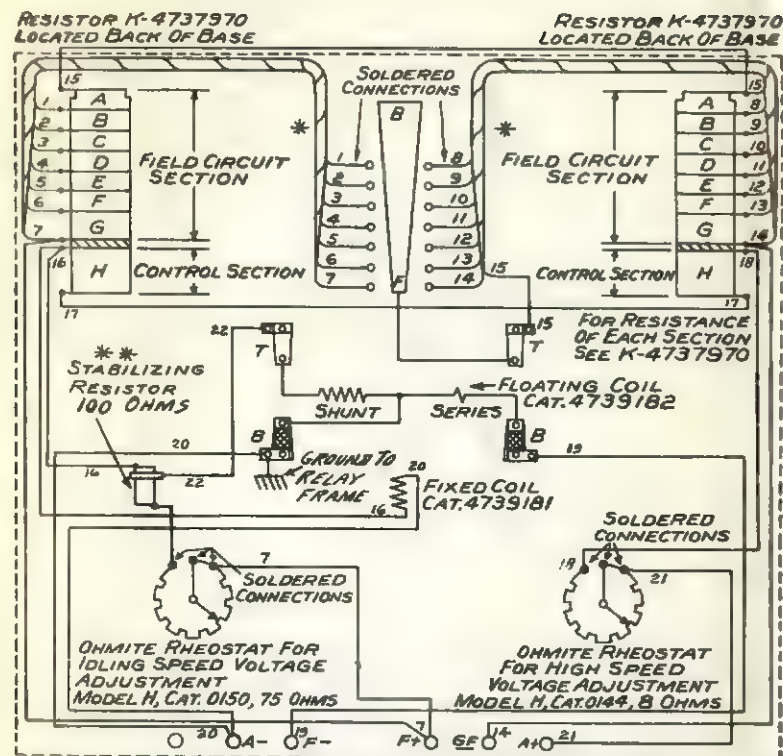 RESISTOR K-4737970
LOCATED BACK OF BASE
RESISTOR K-4737970
LOCATED BACK OF BASE
15
1
2
3
4
5
6
7
16
17
A
B
C
D
E
F
G
H
FIELD CIRCUIT
SECTION
CONTROL SECTION
SOLDERED
CONNECTIONS
*
*
B
F
1
2
3
4
5
6
7
8
9
10
11
12
13
14
15
FIELD CIRCUIT
SECTION
CONTROL SECTION
A
B
C
D
E
F
G
H
15
8
9
10
11
12
13
14
18
17
FOR RESISTANCE
OF EACH SECTION
SEE K-4737970
22
T
15
T
**
STABILIZING
RESISTOR
100 OHMS
SHUNT
SERIES
FLOATING COIL
CAT. 4739182
20
B
B
19
16
22
GROUND TO
RELAY
FRAME
20
16
FIXED COIL
CAT. 4739181
7
SOLDERED
CONNECTIONS
SOLDERED
CONNECTIONS
18
21
OHMITE RHEOSTAT FOR
IDLING SPEED VOLTAGE
ADJUSTMENT
MODEL H, CAT. 0150, 75 OHMS
OHMITE RHEOSTAT
FOR HIGH SPEED
VOLTAGE ADJUSTMENT
MODEL H, CAT. 0144, 8 OHMS
20 A- 19 F- 7 F+ GF 14 A+ 21